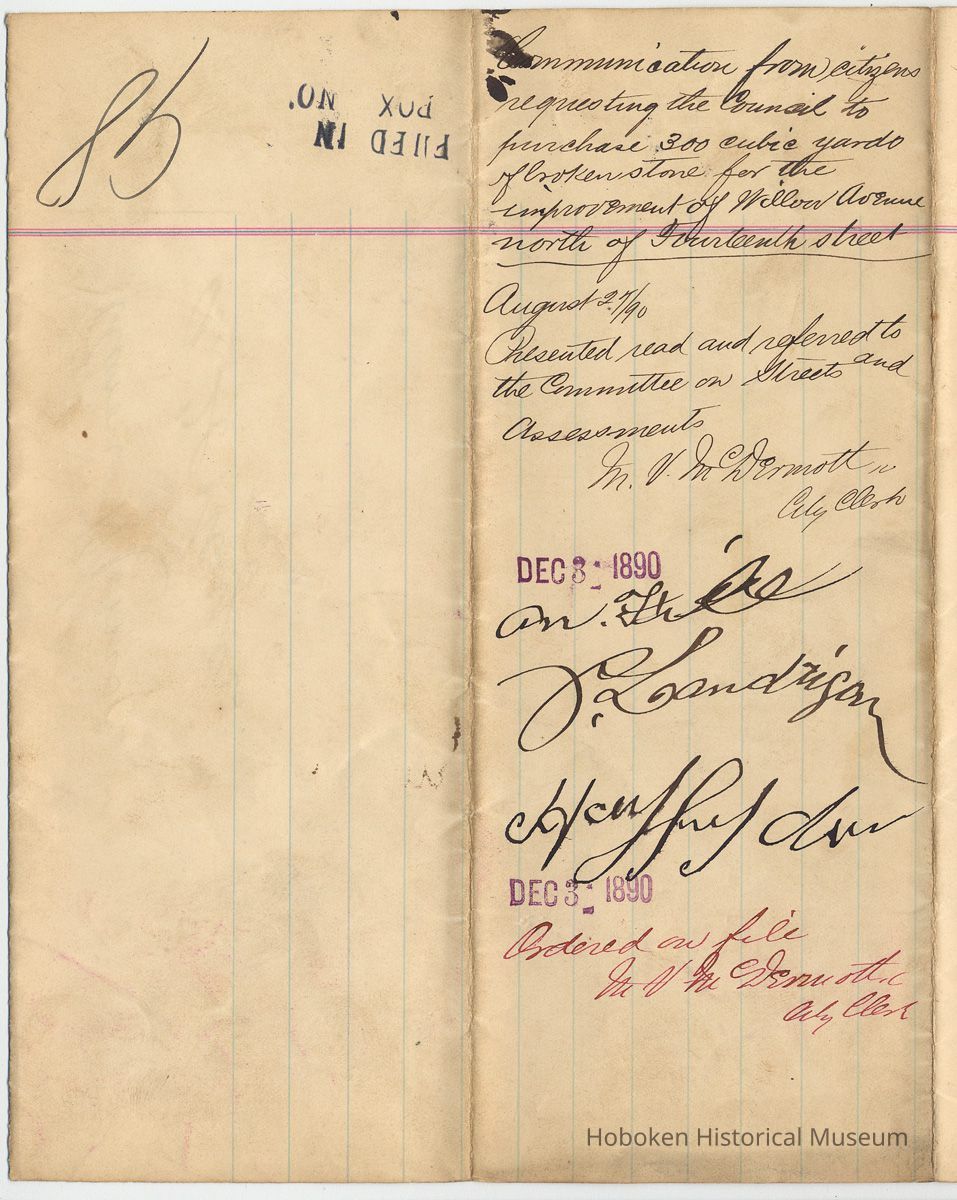 85
FILED IN
BOX NO.
Communication from citizens
requesting the Council to
purchase 300 cubic yards
of broken stone for the
improvement of Willow Avenue
north of Fourteenth street
August 27/90
Presented read and referred to
the Committee on Streets and
Assessments
M. V. McDermott
City Clerk
DEC 3 1890
on File
Landrigan
DEC 3 1890
Ordered on file
M V McDermott
City Clerk
Hoboken Historical Museum